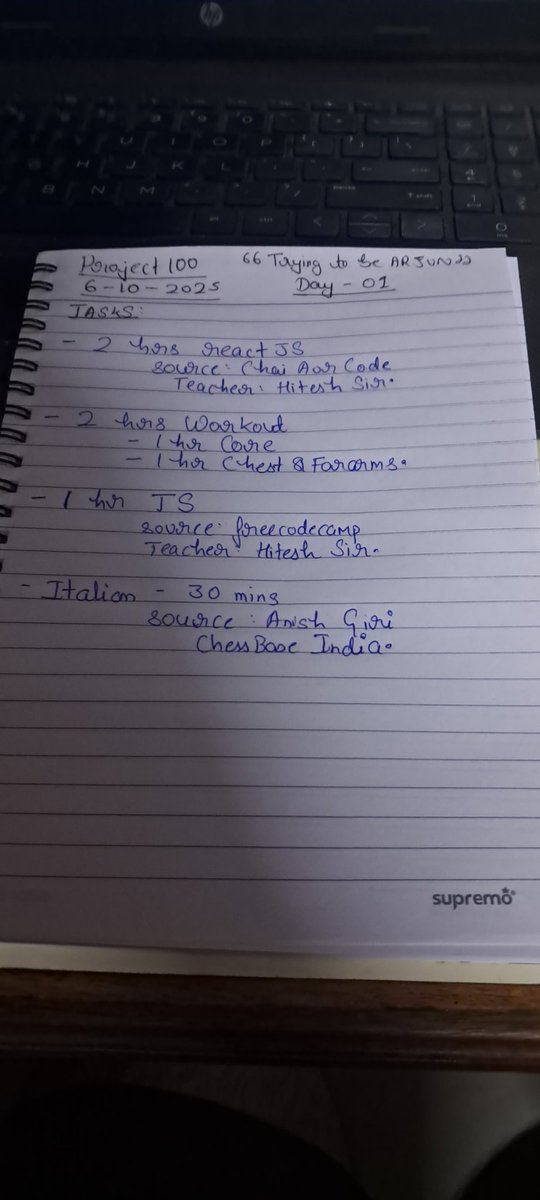 hp
Project 100 66 Trying to be ARJUN 22
6-10-2025 Day - 01
TASKS:
- 2 hrs react JS
source: Chai Aar Code
Teacher: Hitesh Sir.
- 2 hrs Workout
- 1 hr Core
- 1 hr Chest & Forarms.
- 1 hr JS
source: freecodecamp
Teacher: Hitesh Sir.
- Italian - 30 mins
source: Anish Giri
ChessBase India.
supremo